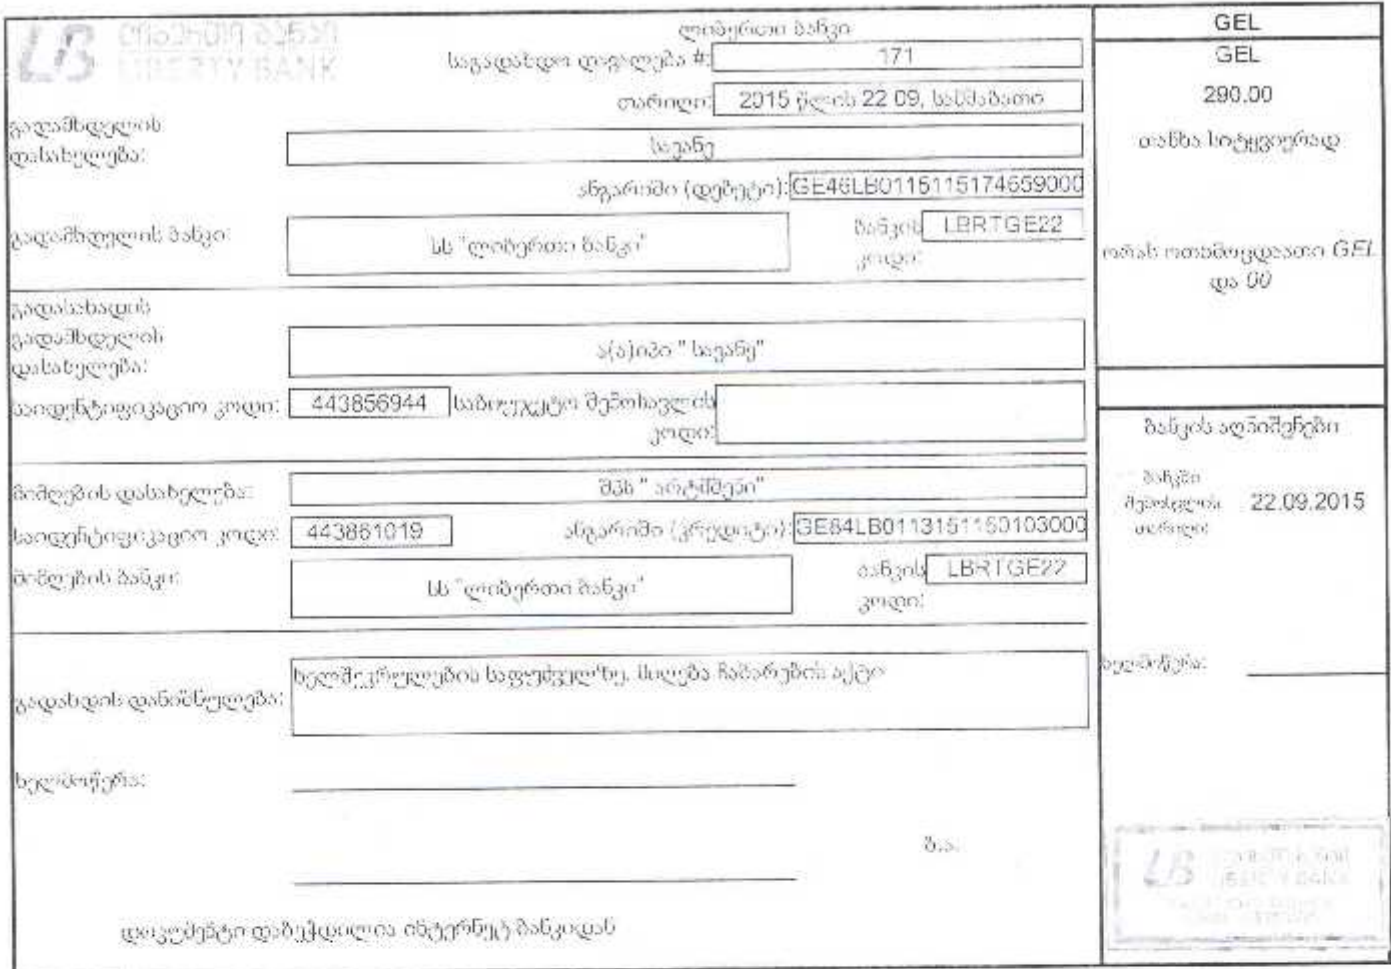 ლიბერთი ბანკი
LIBERTY BANK
ლიბერთი ბანკი
საგადახდო დავალება #: 171
თარიღი: 2015 წლის 22 09, სამშაბათი
გადამხდელის
დასახელება: სავანე
ანგარიში (დებეტი): GE46LB0115115174659000
გადამხდელის ბანკი: სს "ლიბერთი ბანკი"
ბანკის კოდი: LBRTGE22
გადასახადის
გადამხდელის
დასახელება: ა(ა)იპი " სავანე"
საიდენტიფიკაციო კოდი: 443856944
საბიუჯეტო შემოსავლის
კოდი:
მიმღების დასახელება: შპს " არტშმენი"
საიდენტიფიკაციო კოდი: 443861019
ანგარიში (კრედიტი): GE64LB0113151150103000
მიმღების ბანკი: სს "ლიბერთი ბანკი"
ბანკის კოდი: LBRTGE22
გადახდის დანიშნულება: ხელშეკრულების საფუძველზე, მიღება ჩაბარების აქტი
ხელმოწერა:
ბ.ა.
დოკუმენტი დაბეჭდილია ინტერნეტ ბანკიდან
GEL
GEL
290.00
თანხა სიტყვიერად
ორას ოთხმოცდაათი GEL
და 00
ბანკის აღნიშვნები
ბანკში
შემოსვლის
თარიღი: 22.09.2015
ხელმოწერა: